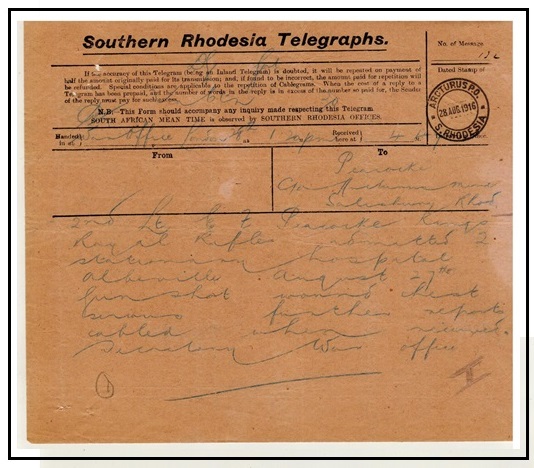 Southern Rhodesia Telegraphs.
No. of Message
Dated Stamp of
If the accuracy of this Telegram (being an Inland Telegram) is doubted, it will be repeated on payment of
half the amount originally paid for its transmission; and, if found to be incorrect, the amount paid for repetition will
be refunded. Special conditions are applicable to the repetition of Cablegrams. When the cost of a reply to a
Telegram has been prepaid, and the number of words in the reply is in excess of the number so paid for, the Sender
of the reply must pay for such excess.
N.B. This Form should accompany any inquiry made respecting this Telegram.
SOUTH AFRICAN MEAN TIME is observed by SOUTHERN RHODESIA OFFICES.
ARCTURUS P.O.
28 AUG 1916
S. RHODESIA
Handed in at War Office London at Received here at
From To
Peacocke
Arcturus Mine
Salisbury Rhod
2nd Lt G E Peacocke Kings
Royal Rifles admitted 2
stationary hospital
Abbeville August 27th
Gun shot wound chest
serious further reports
cabled when received.
Secretary War Office
1